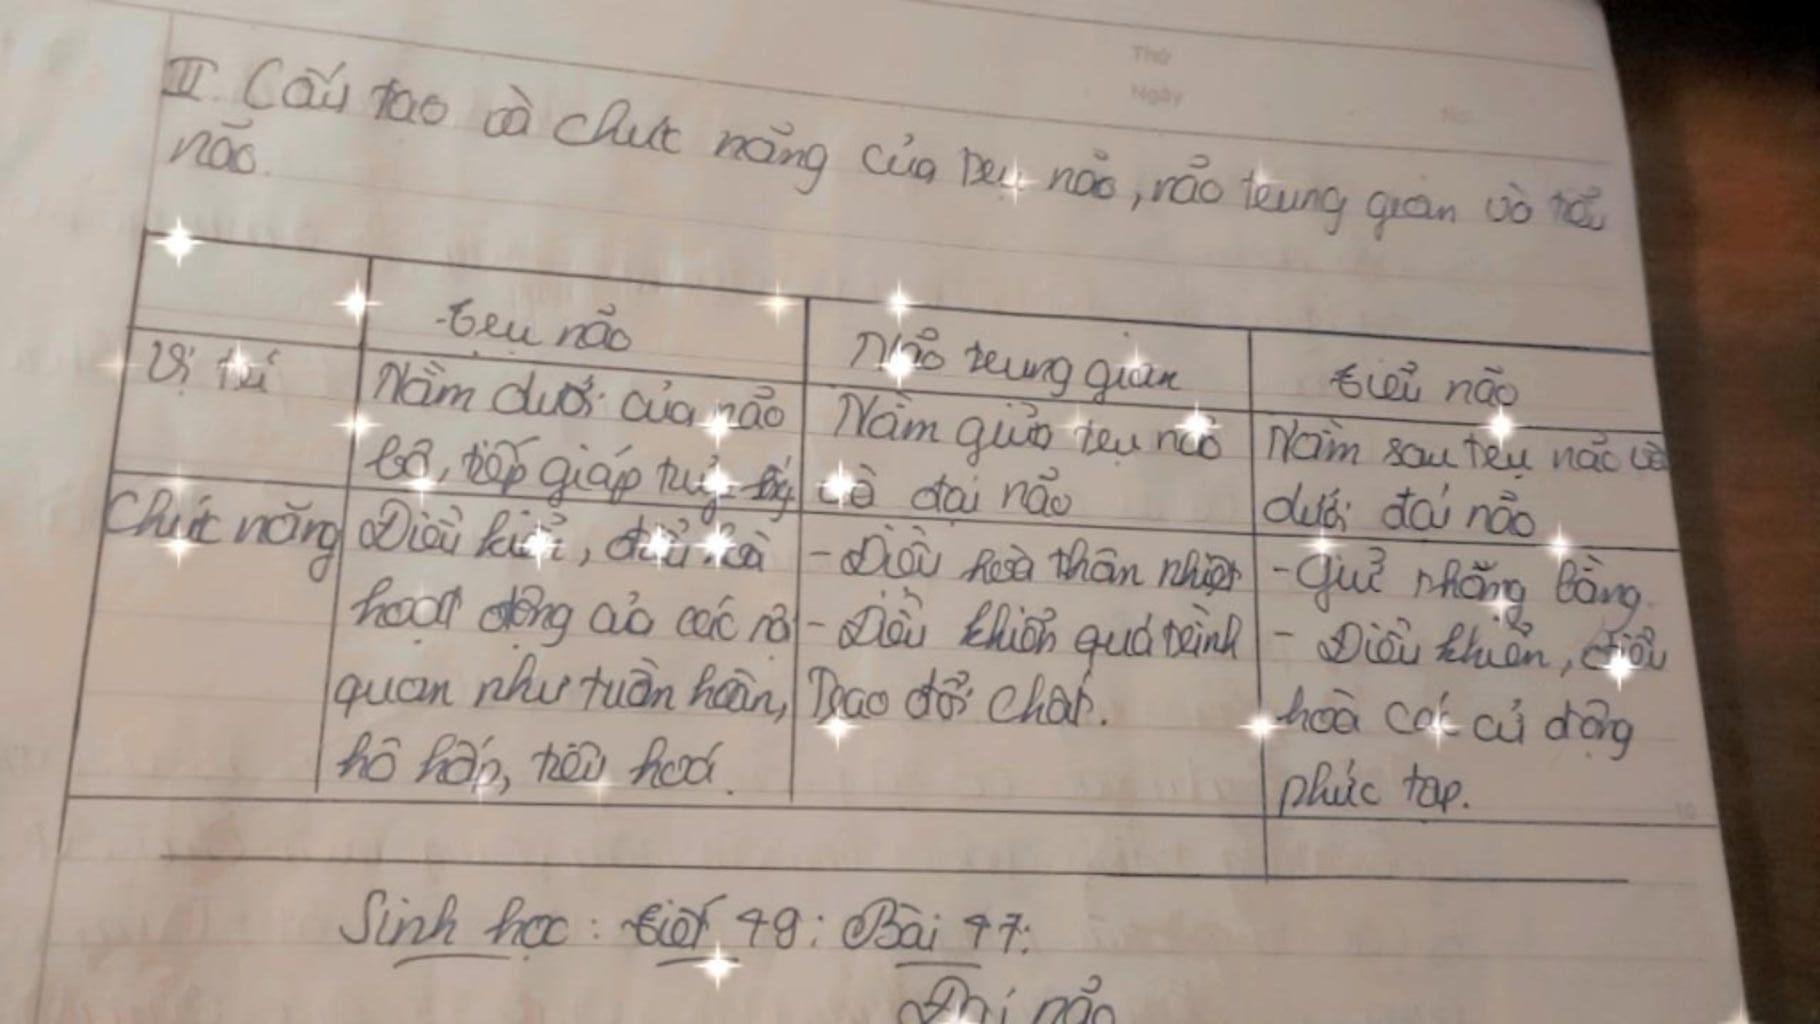 Thứ
Ngày
No.
II. Cấu tạo và chức năng của trụ não, não trung gian và tiểu
não.
trụ não
Não trung gian
tiểu não
Vị trí
Nằm dưới của não
bộ, tiếp giáp tuỷ
Nằm giữa trụ não
và đại não
Nằm sau trụ não và
dưới đại não
Chức năng
Điều khiển, điều hoà
hoạt động của các nội
quan như tuần hoàn,
hô hấp, tiêu hoá.
- Điều hoà thân nhiệt
- Điều khiển quá trình
Trao đổi chất.
- Giữ thăng bằng.
- Điều khiển, điều
hoà các cử động
phức tạp.
Sinh học: tiết 49: Bài 47:
Đại não